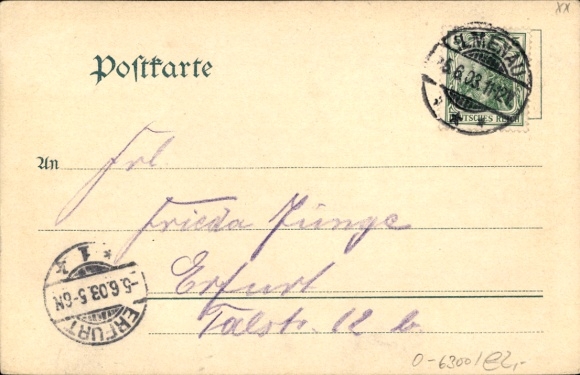 xx
ILMENAU
5.6.03.11-12V
DEUTSCHES REICH
Postkarte
An Frl.
Frieda Junge
Erfurt
Talstr. 12 b
ERFURT
-5.6.03.5-6N
* 1
0-6300/e2,-